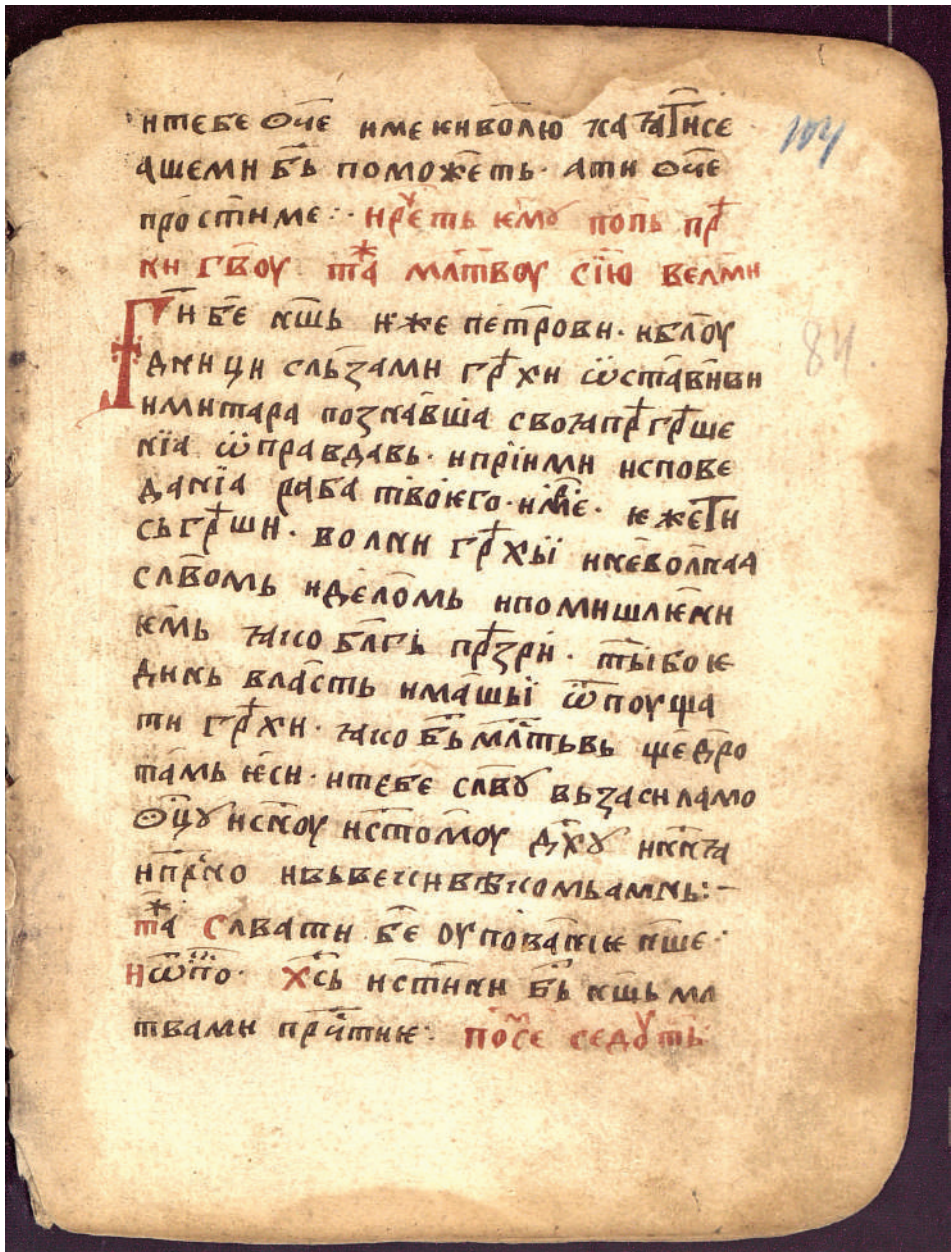 итебе ѡч҃е име ки волю каꙗтисе
ашеми б҃ь поможеть· ати ѡч҃е
простиме:· иреть ѥмꙋ попь прѣ
ки гв҃оу та* мл҃твоу сїю велми
Г҃и бе н҃шь иже петрови· иблоу
дници сльзами грѣхи ѿставиви
имитара познавша своꙗ прѣгрѣше
нїа ѡправдавь· ипрїими испове
данїа раба твоѥго· име҃· ѥжети
сьгрѣши· волни грѣхьї иневолнаа
сл҃вомь иделомь ипомишлѥни
ѥмь ꙗко бл҃гь прѣзри· тыбоѥ
динь власть имашьї ѿпоуща
ти грѣхи· ꙗко б҃ь мл҃тьвь щедро
тамь ѥси· итебе сл҃вꙋ вьзасилаmo
ѡц҃ꙋ исн҃оуист҃омоу дх҃ꙋ ин҃нꙗ
ипр҃но ивьвекивѣкомьаминь:–
та* Сл҃вати бе оупованїѥ н҃ше·
Иѿпо· Хс҃ь истини б҃ь н҃шь мл
твами преч҃тиѥ· посе седꙋть
104
84.